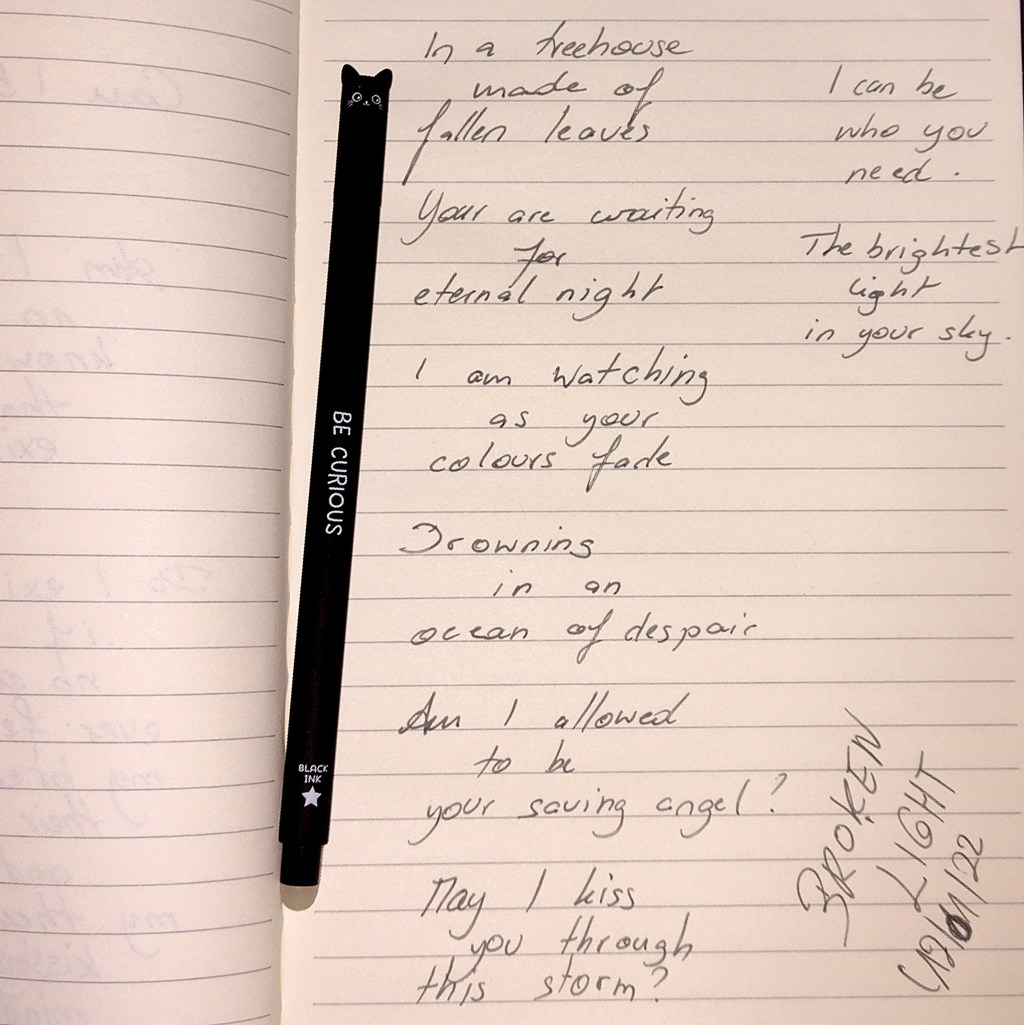 In a treehouse
made of
fallen leaves
Your are waiting
for
eternal night
I am watching
as your
colours fade
Drowning
in an
ocean of despair
Am I allowed
to be
your saving angel?
May I kiss
you through
this storm?
I can be
who you
need.
The brightest
light
in your sky.
BROKEN
LIGHT
12/01/22
BE CURIOUS
BLACK
INK